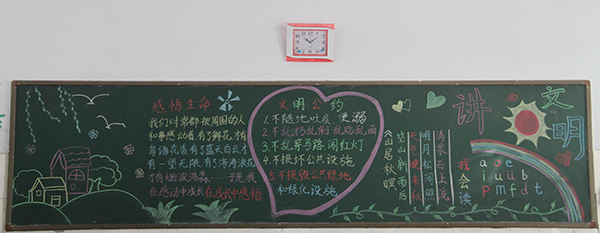 感悟生命
我们时常都被周围的人
和事感动着,有了鲜花,才有
鸟语花香;有了蓝天白云,才
有一望无限;有了海涛浪花
才有烟波浩淼……于是我
在感动中成长,在成长中感悟
文明公约
1.不随地吐痰、便溺
2.不乱扔乱倒乱贴乱画
3.不乱穿马路、闯红灯
4.不损坏公共设施
5.不损毁公共绿地
和绿化设施
讲
文
明
《山居秋暝》
空山新雨后
天气晚来秋
明月松间照
清泉石上流
我会读
a o e
i u ü
p m f d t
b